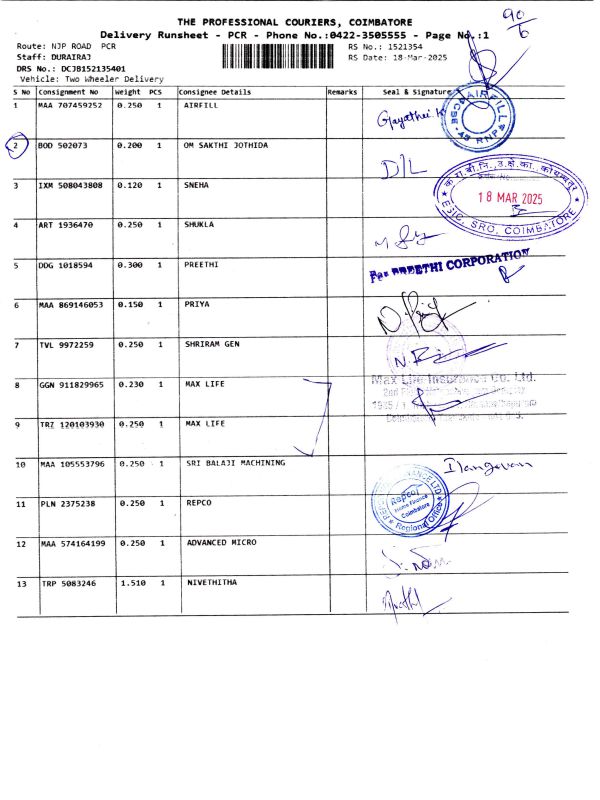 90
6
THE PROFESSIONAL COURIERS, COIMBATORE
Delivery Runsheet - PCR - Phone No.:0422-3505555 - Page No.:1
Route: NJP ROAD PCR RS No.: 1521354
Staff: DURAIRAJ RS Date: 18-Mar-2025
DRS No.: DCJB152135401
Vehicle: Two Wheeler Delivery
S No Consignment No Weight PCS Consignee Details Remarks Seal & Signature
1 MAA 707459252 0.250 1 AIRFILL Gayathri.K AIRFILL
2 BOD 502073 0.200 1 OM SAKTHI JOTHIDA D/L
3 IXM 508043808 0.120 1 SNEHA 18 MAR 2025
ESIC, SRO, COIMBATORE
4 ART 1936470 0.250 1 SHUKLA
5 DDG 1018594 0.300 1 PREETHI For PREETHI CORPORATION
6 MAA 869146053 0.150 1 PRIYA
7 TVL 9972259 0.250 1 SHRIRAM GEN
8 GGN 911829965 0.230 1 MAX LIFE Max Life Insurance Co. Ltd.
9 TRZ 120103930 0.250 1 MAX LIFE
10 MAA 105553796 0.250 1 SRI BALAJI MACHINING Ilangovan
11 PLN 2375238 0.250 1 REPCO Repco Home Finance Coimbatore Regional Office
12 MAA 574164199 0.250 1 ADVANCED MICRO
13 TRP 5083246 1.510 1 NIVETHITHA